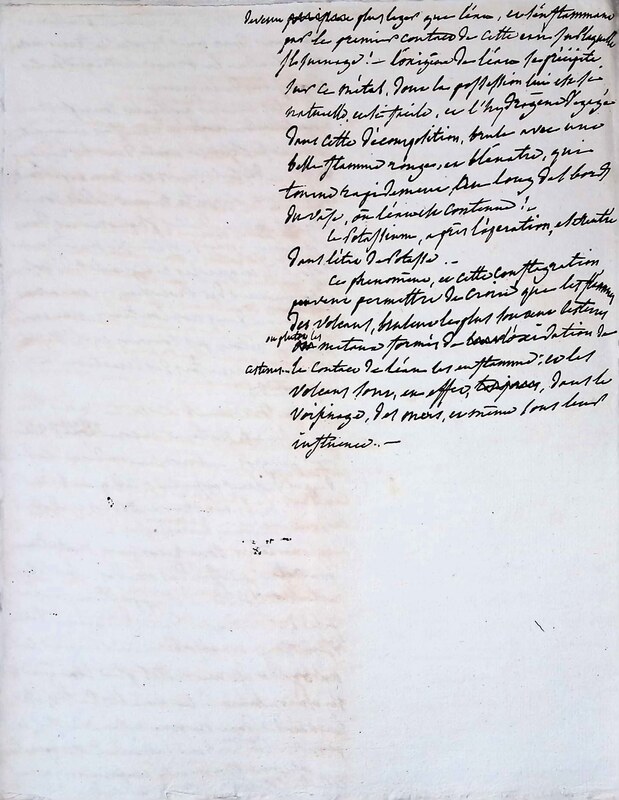 devenu plus leger que l'eau, et s'enflammant
par le premier contact de cette eau sur laquelle
il surnage! – l'oxigène de l'eau se précipite
sur ce métal, dont la possession lui est si
naturelle, et si facile, et l'hydrogène dégagé
dans cette décomposition, brule avec une
belle flamme rouge, et bleuatre, qui
tourne rapidement, au long des bords
du vase, où l'eau est contenue! –
le Potassium, après l'opération, est rentré
dans l'état de Potasse. –
Ce phenomène, et cette conflagration
peuvent permettre de croire que les flammes
des volcans, brulent le plus souvent les terres
ou plutot les
metaux formés de l'oxidation de
ces terres.. le contact de l'eau les enflamme: et les
volcans sont, en effet, dans le
voisinage, des mers, et même sous leur
influence.. –